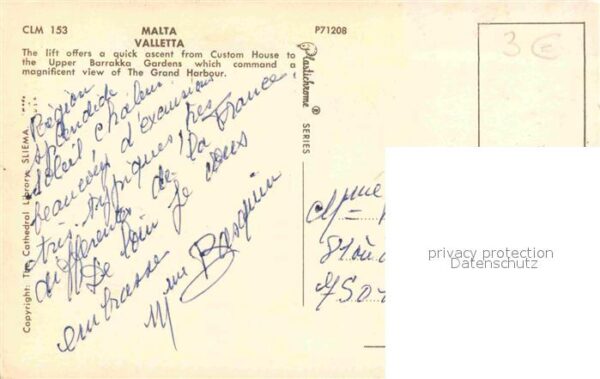 CLM 153
MALTA
VALLETTA
P71208
The lift offers a quick ascent from Custom House to
the Upper Barrakka Gardens which command a
magnificent view of The Grand Harbour.
Copyright: The Cathedral Library, SLIEMA
Plastichrome ® SERIES
Région
splendide
soleil chaleur
beaucoup d'excursions
très typiques, très
différentes de la France.
De loin je vous
embrasse
Mme Basquin
3 €
Mme
privacy protection
Datenschutz
750